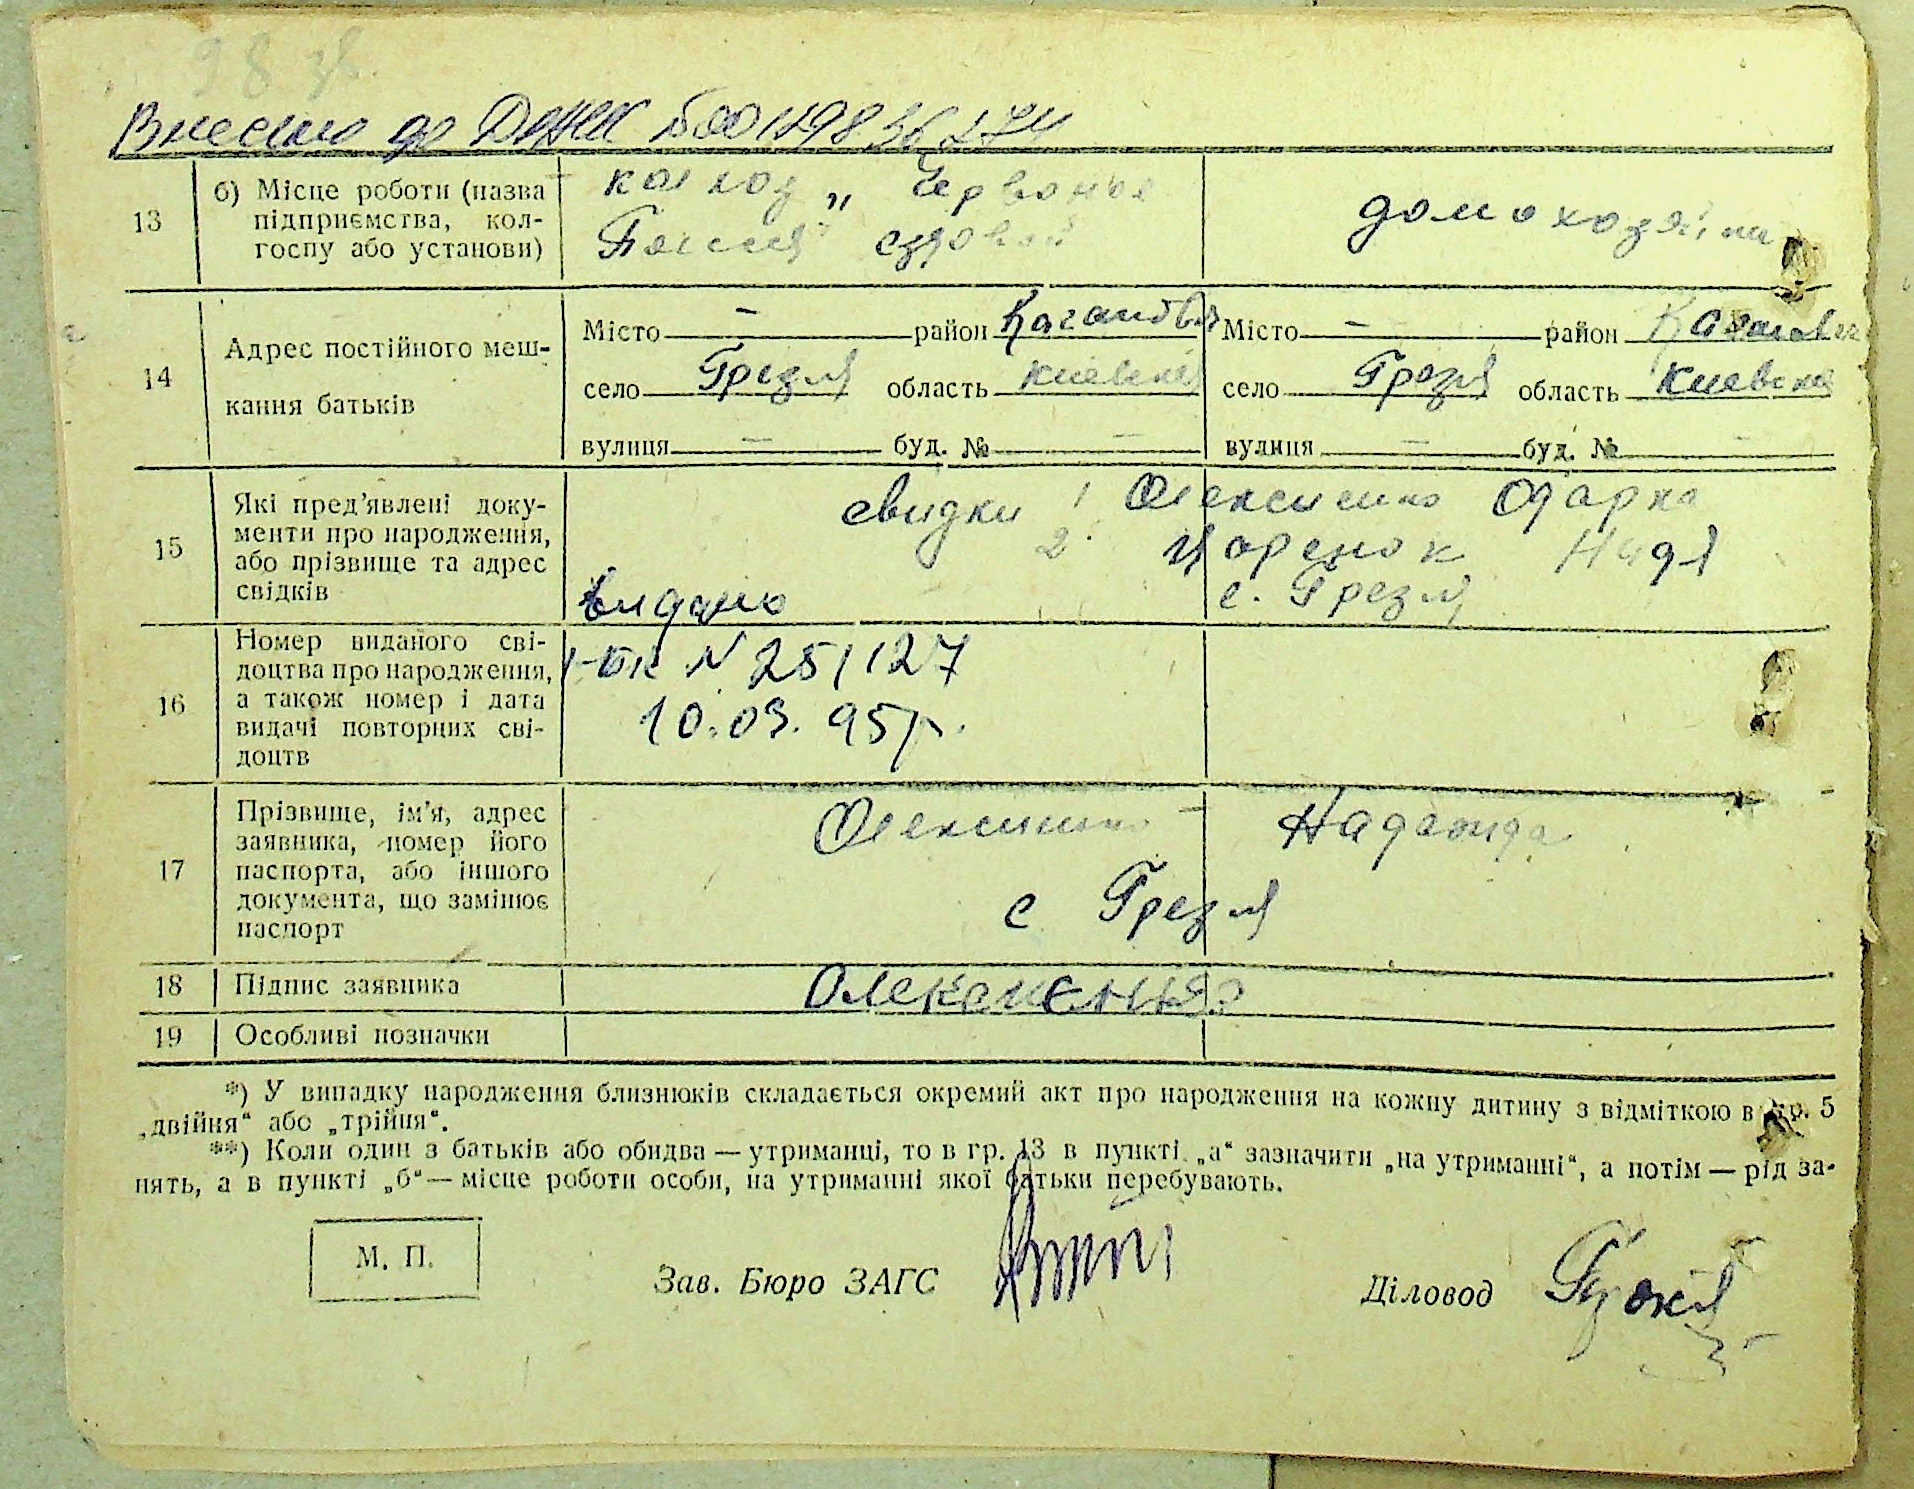 98 зв.
Внесено до ДРАЦС 00149836274
13
б) Місце роботи (назва
підприємства, кол-
госпу або установи)
колхоз „Червоная
Поляна"
домохозяйка
14
Адрес постійного меш-
кання батьків
Місто — район Кагановия
село Грезля область Киевская
вулиця — буд. № —
Місто — район Каганович
село Грезля область Киевска
вулиця — буд. № —
15
Які пред’явлені доку-
менти про народження,
або прізвище та адрес
свідків
свидки 1 Олексиенко Одарка
2. Царенок Надя
с. Грезля
Видано
16
Номер виданого сві-
доцтва про народження,
а також номер і дата
видачі повторних сві-
доцтв
І-БК N 251127
10.03.95р.
17
Прізвище, ім’я, адрес
заявника, номер його
паспорта, або іншого
документа, що замінює
паспорт
Олексиенко — Надежда
с Грезля
18
Підпис заявника
Олексиенко
19
Особливі позначки
*) У випадку народження близнюків складається окремий акт про народження на кожну дитину з відміткою в гр. 5
„двійня“ або „трійня“.
**) Коли один з батьків або обидва — утриманці, то в гр. 13 в пункті „а“ зазначити „на утриманні“, а потім — рід за-
нять, а в пункті „б“ — місце роботи особи, на утриманні якої батьки перебувають.
М. П.
Зав. Бюро ЗАГС
Діловод